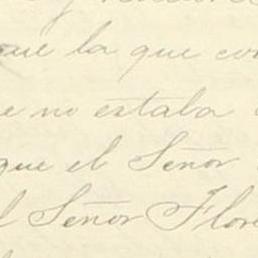 que la que con
e no estaba
que el Señor
l Señor Flore